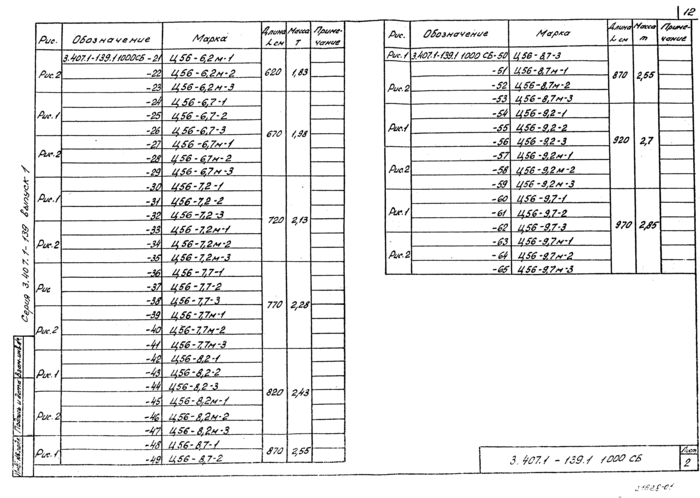 12
Рис. Обозначение Марка Длина L см Масса Т Примечание
3.407.1-139.1 1000СБ -21 Ц56-6,2м-1
Рис.2 -22 Ц56-6,2м-2 620 1,83
-23 Ц56-6,2м-3
-24 Ц56-6,7-1
Рис.1 -25 Ц56-6,7-2
-26 Ц56-6,7-3 670 1,98
Рис.2 -27 Ц56-6,7м-1
-28 Ц56-6,7м-2
-29 Ц56-6,7м-3
-30 Ц56-7,2-1
Рис.1 -31 Ц56-7,2-2
-32 Ц56-7,2-3 720 2,13
-33 Ц56-7,2м-1
Рис.2 -34 Ц56-7,2м-2
-35 Ц56-7,2м-3
-36 Ц56-7,7-1
Рис -37 Ц56-7,7-2
-38 Ц56-7,7-3 770 2,28
-39 Ц56-7,7м-1
Рис.2 -40 Ц56-7,7м-2
-41 Ц56-7,7м-3
-42 Ц56-8,2-1
Рис.1 -43 Ц56-8,2-2
-44 Ц56-8,2-3 820 2,43
-45 Ц56-8,2м-1
Рис.2 -46 Ц56-8,2м-2
-47 Ц56-8,2м-3
Рис.1 -48 Ц56-8,7-1 870 2,55
-49 Ц56-8,7-2
Рис. Обозначение Марка Длина L см Масса т Примечание
Рис.1 3.407.1-139.1 1000 СБ-50 Ц56-8,7-3
-51 Ц56-8,7м-1 870 2,55
Рис.2 -52 Ц56-8,7м-2
-53 Ц56-8,7м-3
-54 Ц56-9,2-1
Рис.1 -55 Ц56-9,2-2
-56 Ц56-9,2-3 920 2,7
-57 Ц56-9,2м-1
Рис.2 -58 Ц56-9,2м-2
-59 Ц56-9,2м-3
-60 Ц56-9,7-1
Рис.1 -61 Ц56-9,7-2
-62 Ц56-9,7-3 970 2,85
-63 Ц56-9,7м-1
Рис.2 -64 Ц56-9,7м-2
-65 Ц56-9,7м-3
Серия 3.407.1-139 выпуск 1
Подпись и дата
3.407.1-139.1 1000 СБ
Лист
2